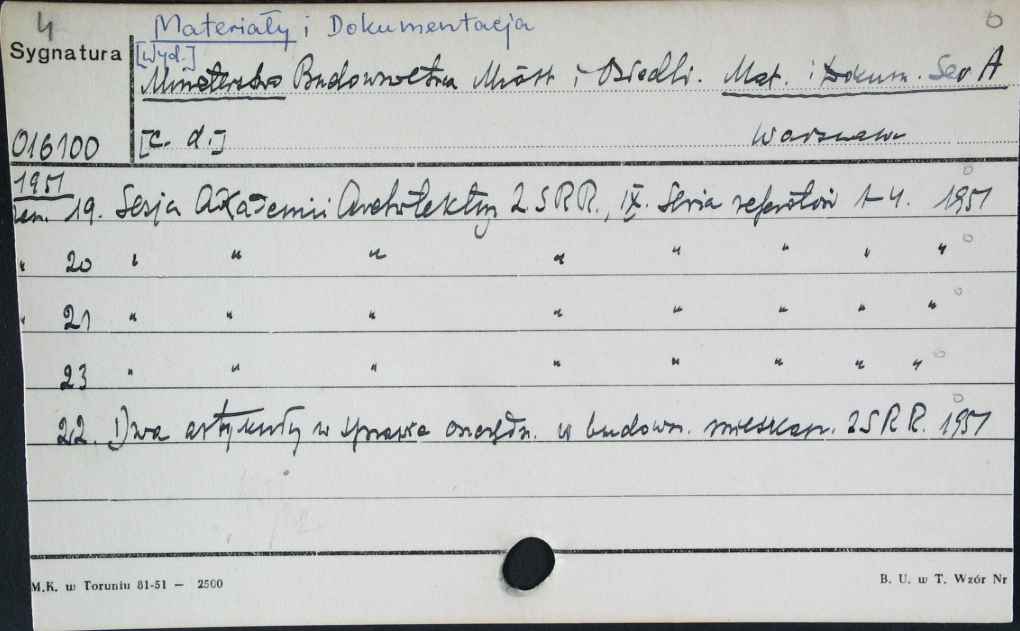 4 Materiały i Dokumentacja
Sygnatura [Wyd.]
Ministerstwo Budownictwa Miast i Osiedli. Mat. i Dokum. Ser A
016100 [c. d.] Warszawa
1951
19. Sesja Akademii Architektury ZSRR., IX. Seria referatów 1-4. 1951
" 20 " " " " " " " "
" 21 " " " " " " " "
23 " " " " " " " "
22. Dwa artykuły w sprawie oszczędn. w budown. mieszkan. ZSRR. 1951
M.K. w Toruniu 81-51 — 2500 B. U. w T. Wzór Nr